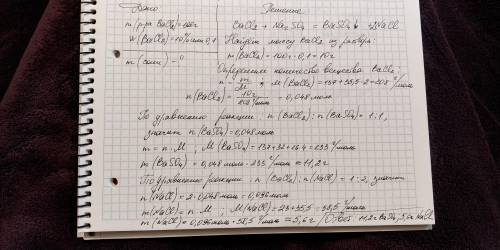 Дано
Решение
m(р-ра BaCl₂)=100г
BaCl₂ + Na₂SO₄ = BaSO₄↓ + 2NaCl
W(BaCl₂)=10% или 0,1
Найдем массу BaCl₂ из раствора:
m(BaCl₂) = 100г · 0,1 = 10г
m(соли) - ?
Определяем количество вещества BaCl₂:
n = m/M ; M(BaCl₂) = 137 + 35,5 · 2 = 208 г/моль
n(BaCl₂) = 10г / 208 г/моль = 0,048 моль
По уравнению реакции n(BaCl₂) : n(BaSO₄) = 1:1,
значит n(BaSO₄) = 0,048 моль
m = n · M ; M(BaSO₄) = 137 + 32 + 16·4 = 233 г/моль
m(BaSO₄) = 0,048 моль · 233 г/моль = 11,2 г
По уравнению реакции : n(BaCl₂) : n(NaCl) = 1:2, значит
n(NaCl) = 2 · 0,048 моль = 0,096 моль
m(NaCl) = n · M ; M(NaCl) = 23 + 35,5 = 58,5 г/моль
m(NaCl) = 0,096 моль · 58,5 г/моль = 5,6 г / Ответ 11,2г BaSO₄, 5,6г NaCl